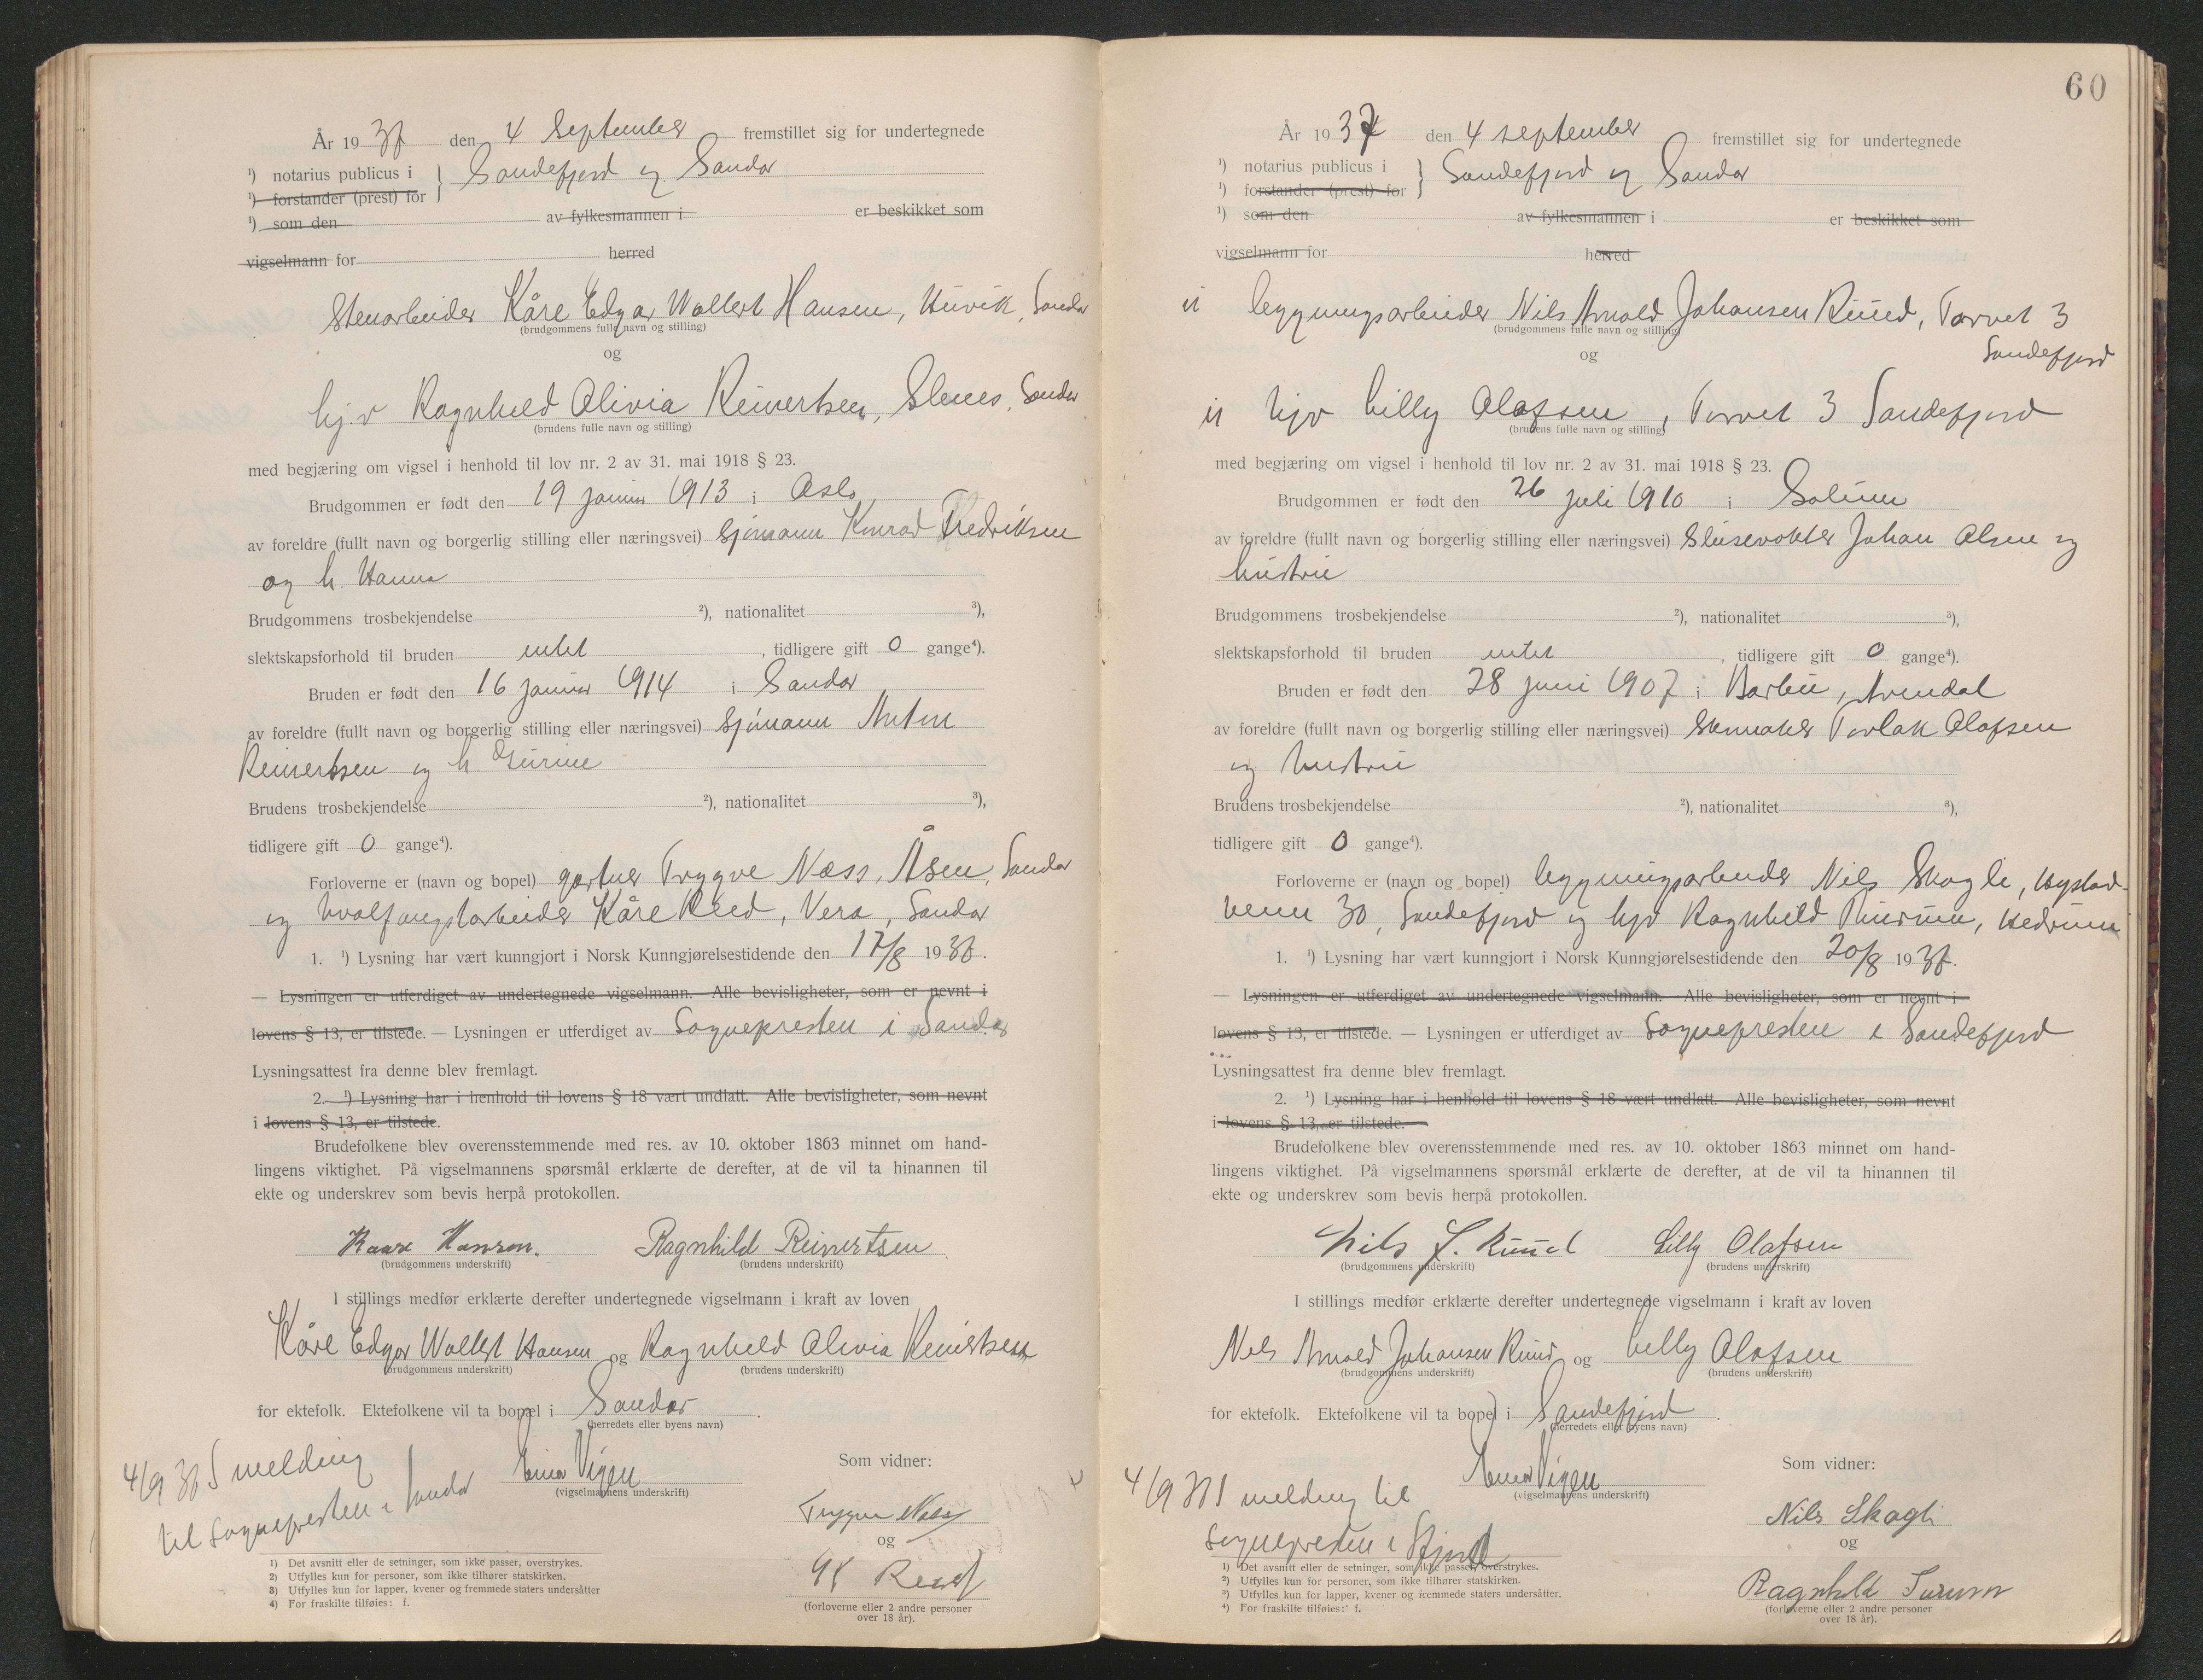 År 1937 den 4 September fremstillet sig for undertegnede
¹) notarius publicus i } Sandefjord og Sandar
¹) forstander (prest) for
¹) som den av fylkesmannen i er beskikket som
vigselmann for herred
Stenarbeider Kåre Edgar Wallert Hansen, Huvik, Sandar
(brudgommens fulle navn og stilling)
og
hj.v Ragnhild Olivia Reinertsen, Sandar
(brudens fulle navn og stilling)
med begjæring om vigsel i henhold til lov nr. 2 av 31. mai 1918 § 23.
Brudgommen er født den 19 januar 1913 i Oslo
av foreldre (fullt navn og borgerlig stilling eller næringsvei) Sjømann Konrad Fredriksen
og h. Hanna
Brudgommens trosbekjendelse ²), nationalitet ³),
slektskapsforhold til bruden intet , tidligere gift 0 gange⁴).
Bruden er født den 16 januar 1914 i Sandar
av foreldre (fullt navn og borgerlig stilling eller næringsvei) Sjømann Anton
Reinertsen og h Gurine
Brudens trosbekjendelse ²), nationalitet ³),
tidligere gift 0 gange⁴).
Forloverne er (navn og bopel) gartner Trygve Næss, Åsen, Sandar
og hvalfangstarbeider Kåre Reed, Vera, Sandar
1. ¹) Lysning har vært kunngjort i Norsk Kunngjørelsestidende den 17/8 1937.
— Lysningen er utferdiget av undertegnede vigselmann. Alle bevisligheter, som er nevnt i
lovens § 13, er tilstede. — Lysningen er utferdiget av Sognepresten i Sandar
Lysningsattest fra denne blev fremlagt.
2. ¹) Lysning har i henhold til lovens § 18 vært undlatt. Alle bevisligheter, som nevnt
i lovens § 13, er tilstede.
Brudefolkene blev overensstemmende med res. av 10. oktober 1863 minnet om hand-
lingens viktighet. På vigselmannens spørsmål erklærte de derefter, at de vil ta hinannen til
ekte og underskrev som bevis herpå protokollen.
Kaare Hansen. Ragnhild Reinertsen
(brudgommens underskrift) (brudens underskrift)
I stillings medfør erklærte derefter undertegnede vigselmann i kraft av loven
Kåre Edgar Wallert Hansen og Ragnhild Olivia Reinertsen
(brudgommens underskrift) (brudens underskrift)
for ektefolk. Ektefolkene vil ta bopæl i Sandar.
(herredets eller byens navn)
4/9 37 melding
til sognepresten i Sandar
Einar Vigen
(vigselmannens underskrift)
Som vidner:
Trygve Næss
og
Reed
(forloverne eller 2 andre personer
over 18 år).
1) Det avsnitt eller de setninger, som ikke passer, overstrykes.
2) Utfylles kun for personer, som ikke tilhører statskirken.
3) Utfylles kun for lapper, kvener og fremmede staters undersåtter
4) For fraskilte tilføies: f.
60
År 1937 den 4 september fremstillet sig for undertegnede
¹) notarius publicus i } Sandefjord og Sandar
¹) forstander (prest) for
¹) som den av fylkesmannen i er beskikket som
vigselmann for herred
bygningsarbeider Nils Arnold Johansen Ruud, Torvet 3
Sandefjord
(brudgommens fulle navn og stilling)
og
hjv Lilly Olafsen, Torvet 3 Sandefjord
(brudens fulle navn og stilling)
med begjæring om vigsel i henhold til lov nr. 2 av 31. mai 1918 § 23.
Brudgommen er født den 26 juli 1910 i Solum
av foreldre (fullt navn og borgerlig stilling eller næringsvei) Slusevokter Johan Olsen og
hustru
Brudgommens trosbekjendelse ²), nationalitet ³),
slektskapsforhold til bruden intet , tidligere gift 0 gange⁴).
Bruden er født den 28 juni 1907 i Barbu, Arendal
av foreldre (fullt navn og borgerlig stilling eller næringsvei) Skomaker Torlak Olafsen
og hustru
Brudens trosbekjendelse ²), nationalitet ³),
tidligere gift 0 gange⁴).
Forloverne er (navn og bopel) bygningsarbeider Nils Skogli, Hystad-
veien 30, Sandefjord og hjv Ragnhild Thurum, Hedrum
1. ¹) Lysning har vært kunngjort i Norsk Kunngjørelsestidende den 20/8 1937.
— Lysningen er utferdiget av undertegnede vigselmann. Alle bevisligheter, som er nevnt i
lovens § 13, er tilstede. — Lysningen er utferdiget av Sognepresten i Sandefjord
Lysningsattest fra denne blev fremlagt.
2. ¹) Lysning har i henhold til lovens § 18 vært undlatt. Alle bevisligheter, som nevnt
i lovens § 13, er tilstede.
Brudefolkene blev overensstemmende med res. av 10. oktober 1863 minnet om hand-
lingens viktighet. På vigselmannens spørsmål erklærte de derefter, at de vil ta hinannen til
ekte og underskrev som bevis herpå protokollen.
Nils J. Ruud Lilly Olafsen
(brudgommens underskrift) (brudens underskrift)
I stillings medfør erklærte derefter undertegnede vigselmann i kraft av loven
Nils Arnold Johansen Ruud og Lilly Olafsen
(brudgommens underskrift) (brudens underskrift)
for ektefolk. Ektefolkene vil ta bopel i Sandefjord.
(herredets eller byens navn)
4/9 37 melding til
sognepresten i Sfjord
Einar Vigen
(vigselmannens underskrift)
Som vidner:
Nils Skogli
og
Ragnhild Turum
(forloverne eller 2 andre personer
over 18 år).
¹) Det avsnitt eller de setninger, som ikke passer, overstrykes.
²) Utfylles kun for personer, som ikke tilhører statskirken.
³) Utfylles kun for lapper, kvener og fremmede staters undersåtter.
⁴) For fraskilte tilføies: f.